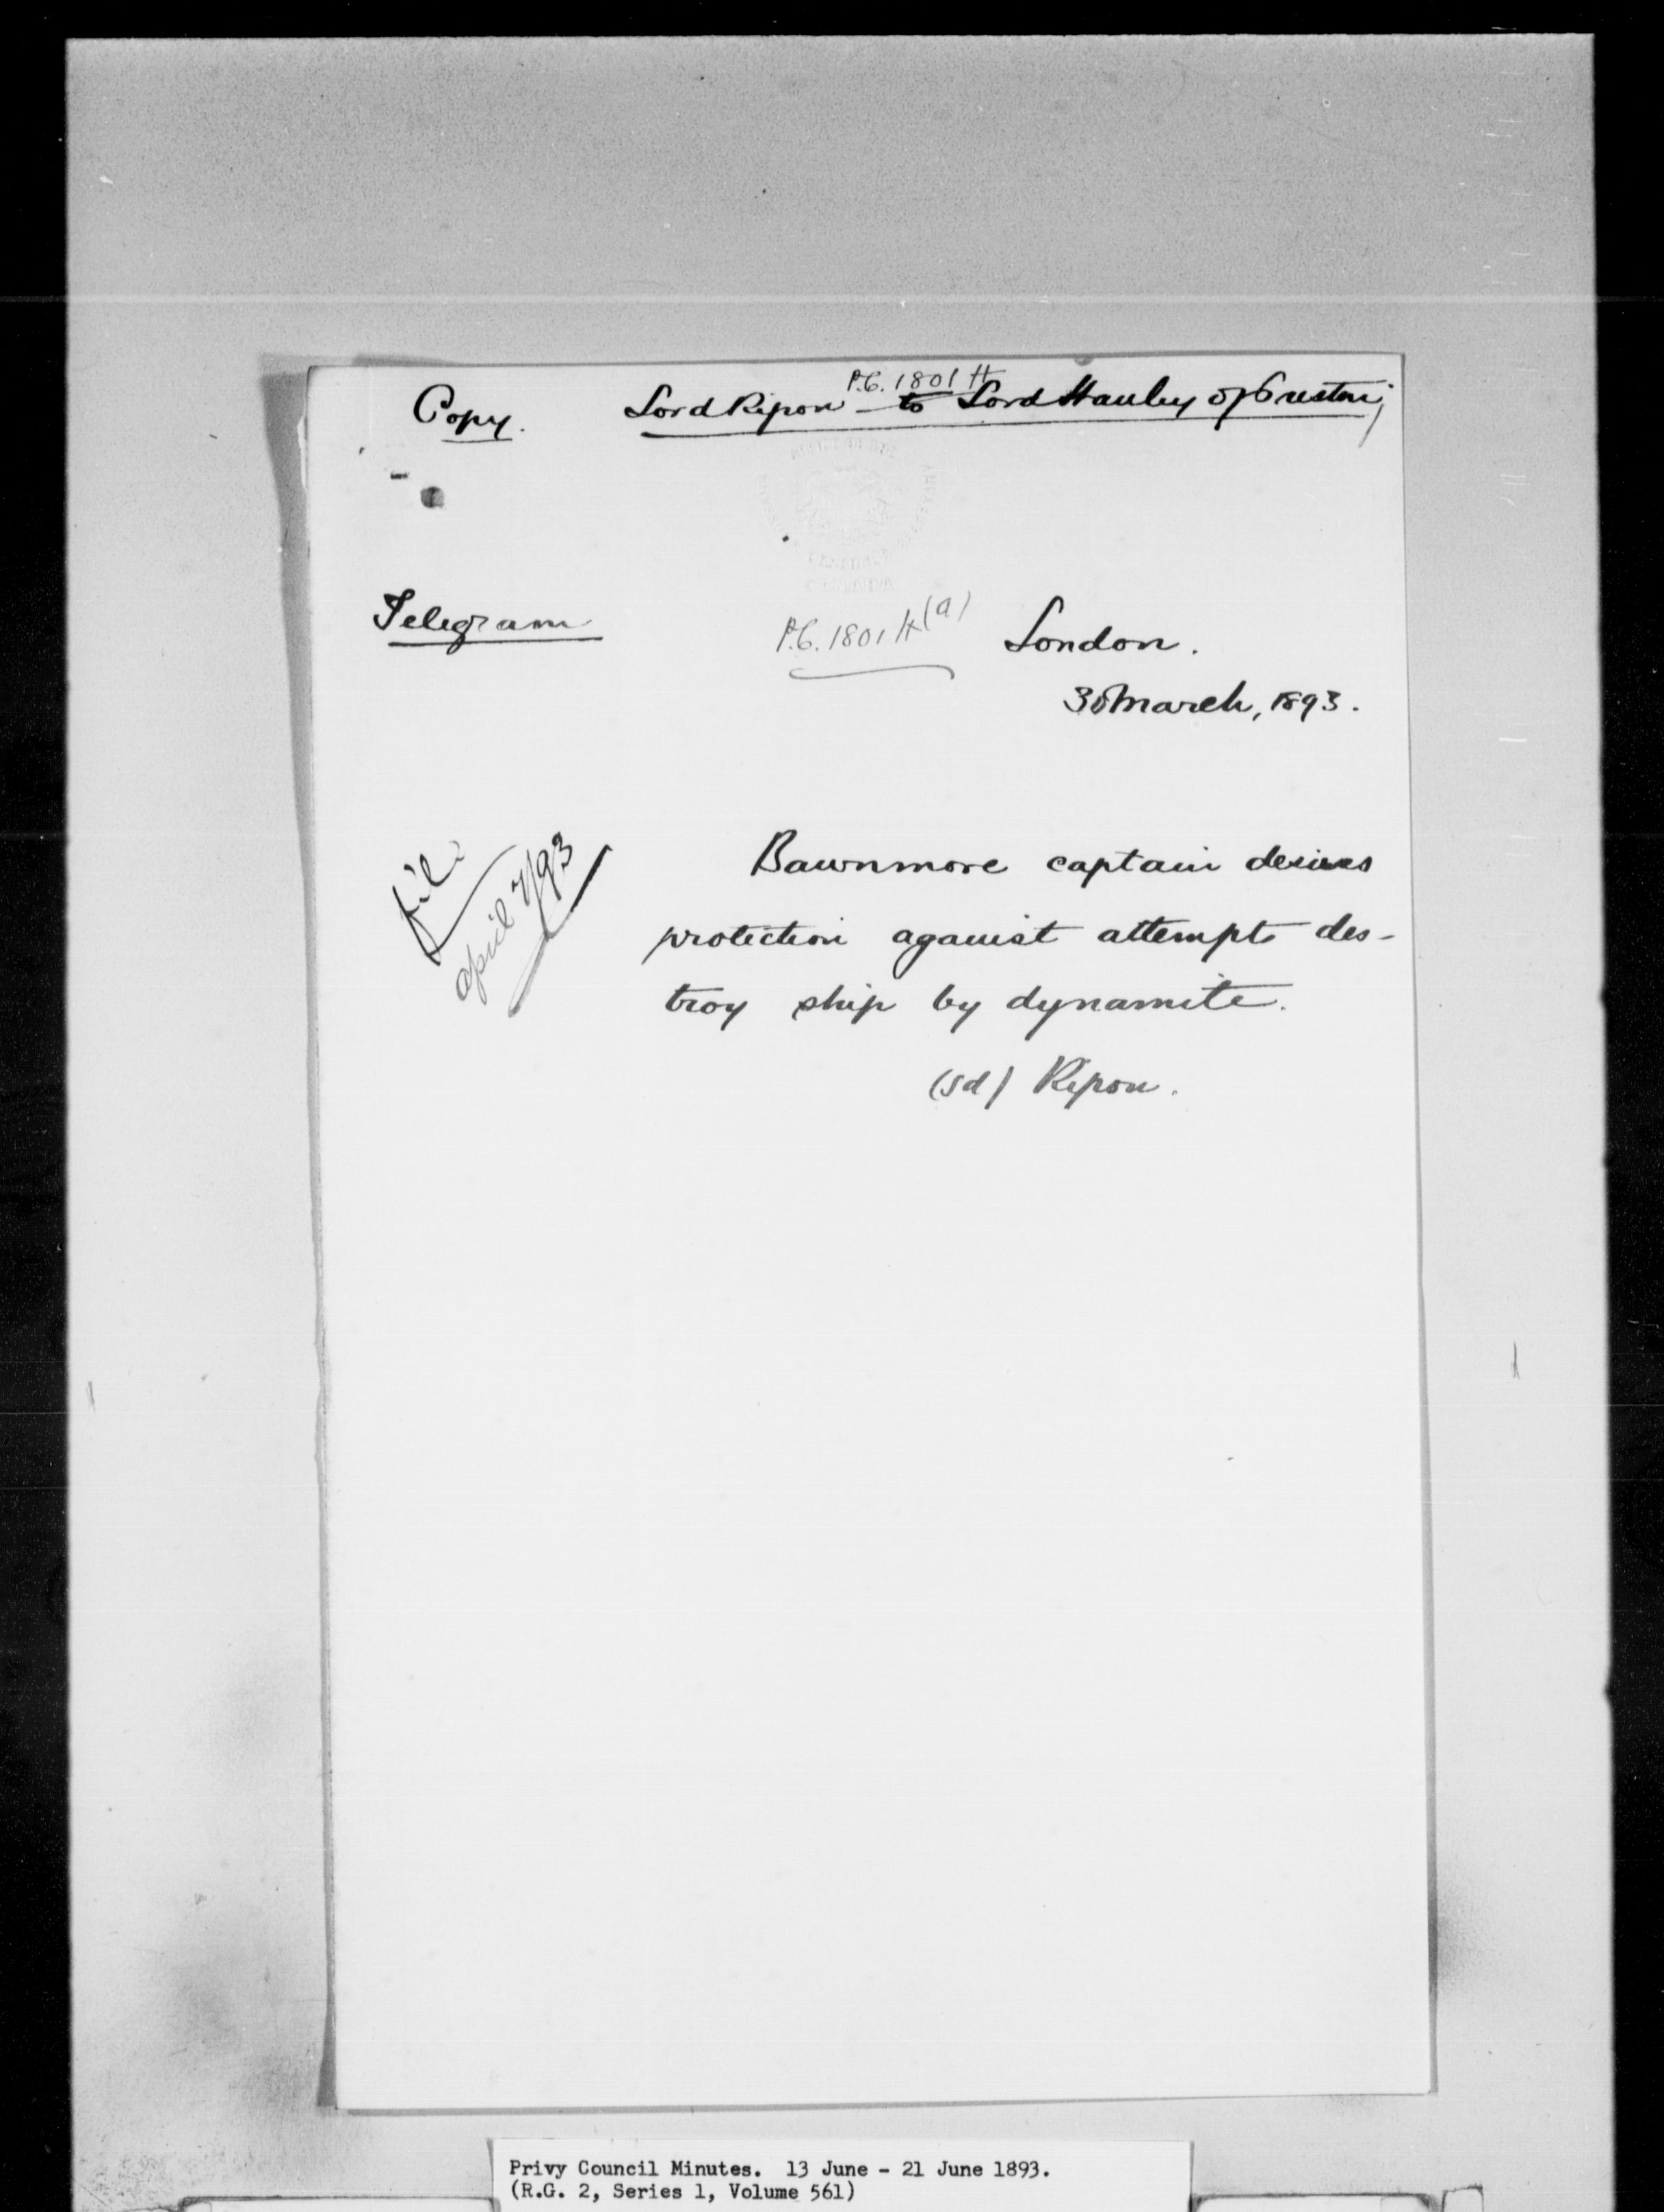 P.C. 1801 H
Copy. Lord Ripon to Lord Stanley of Preston;
Telegram
P.C. 1801 H (a)
London.
30 March, 1893.
file
april 7/93
Bawnmore captain desires
protection against attempt des-
troy ship by dynamite.
(sd) Ripon.
Privy Council Minutes. 13 June - 21 June 1893.
(R.G. 2, Series 1, Volume 561)